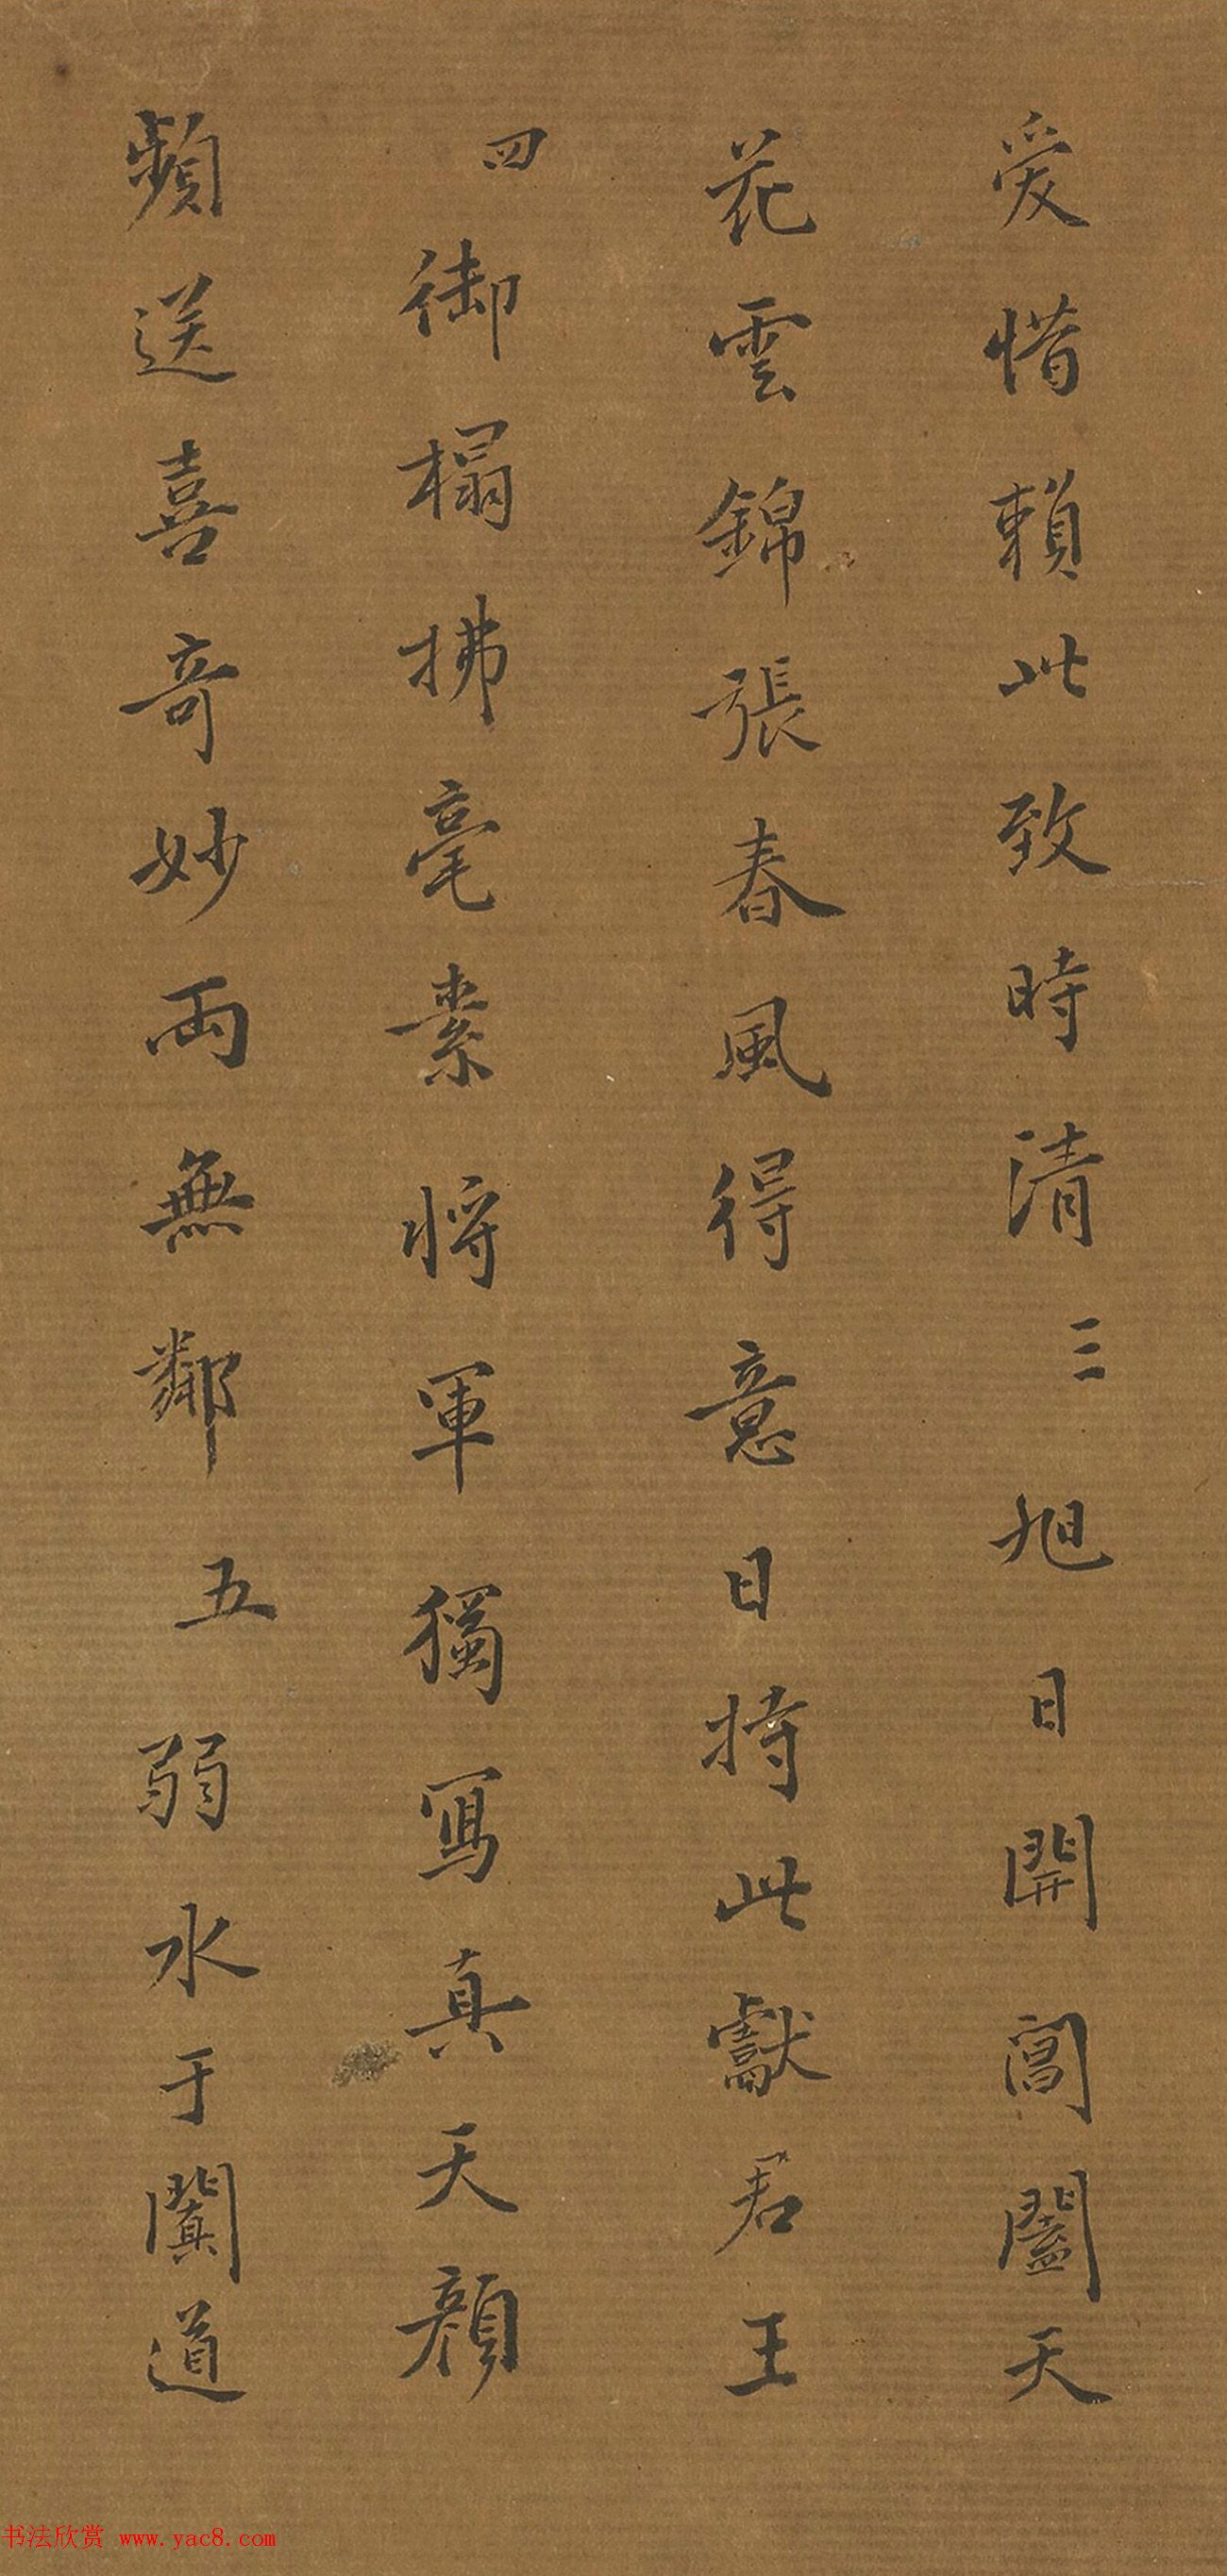 爰惜賴此致時清三旭日開閶闔天
花雲錦張春風得意日持此獻君王
四御榻拂毫素將軍獨寫真天顏
頻送喜奇妙兩無鄰五弱水于闐道
书法欣赏 www.yac8.com